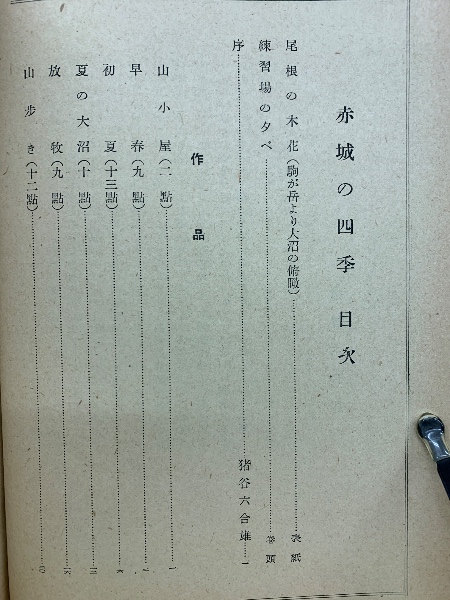 赤城の四季 目次
尾根の木花(駒が岳より大沼の俯瞰)……表紙
練習場の夕べ……巻頭
序……猪谷六合雄……一
作品
山小屋(二點)……一
早春(九點)……
初夏(十三點)……
夏の大沼(十點)……
放牧(九點)……
山歩き(十二點)……